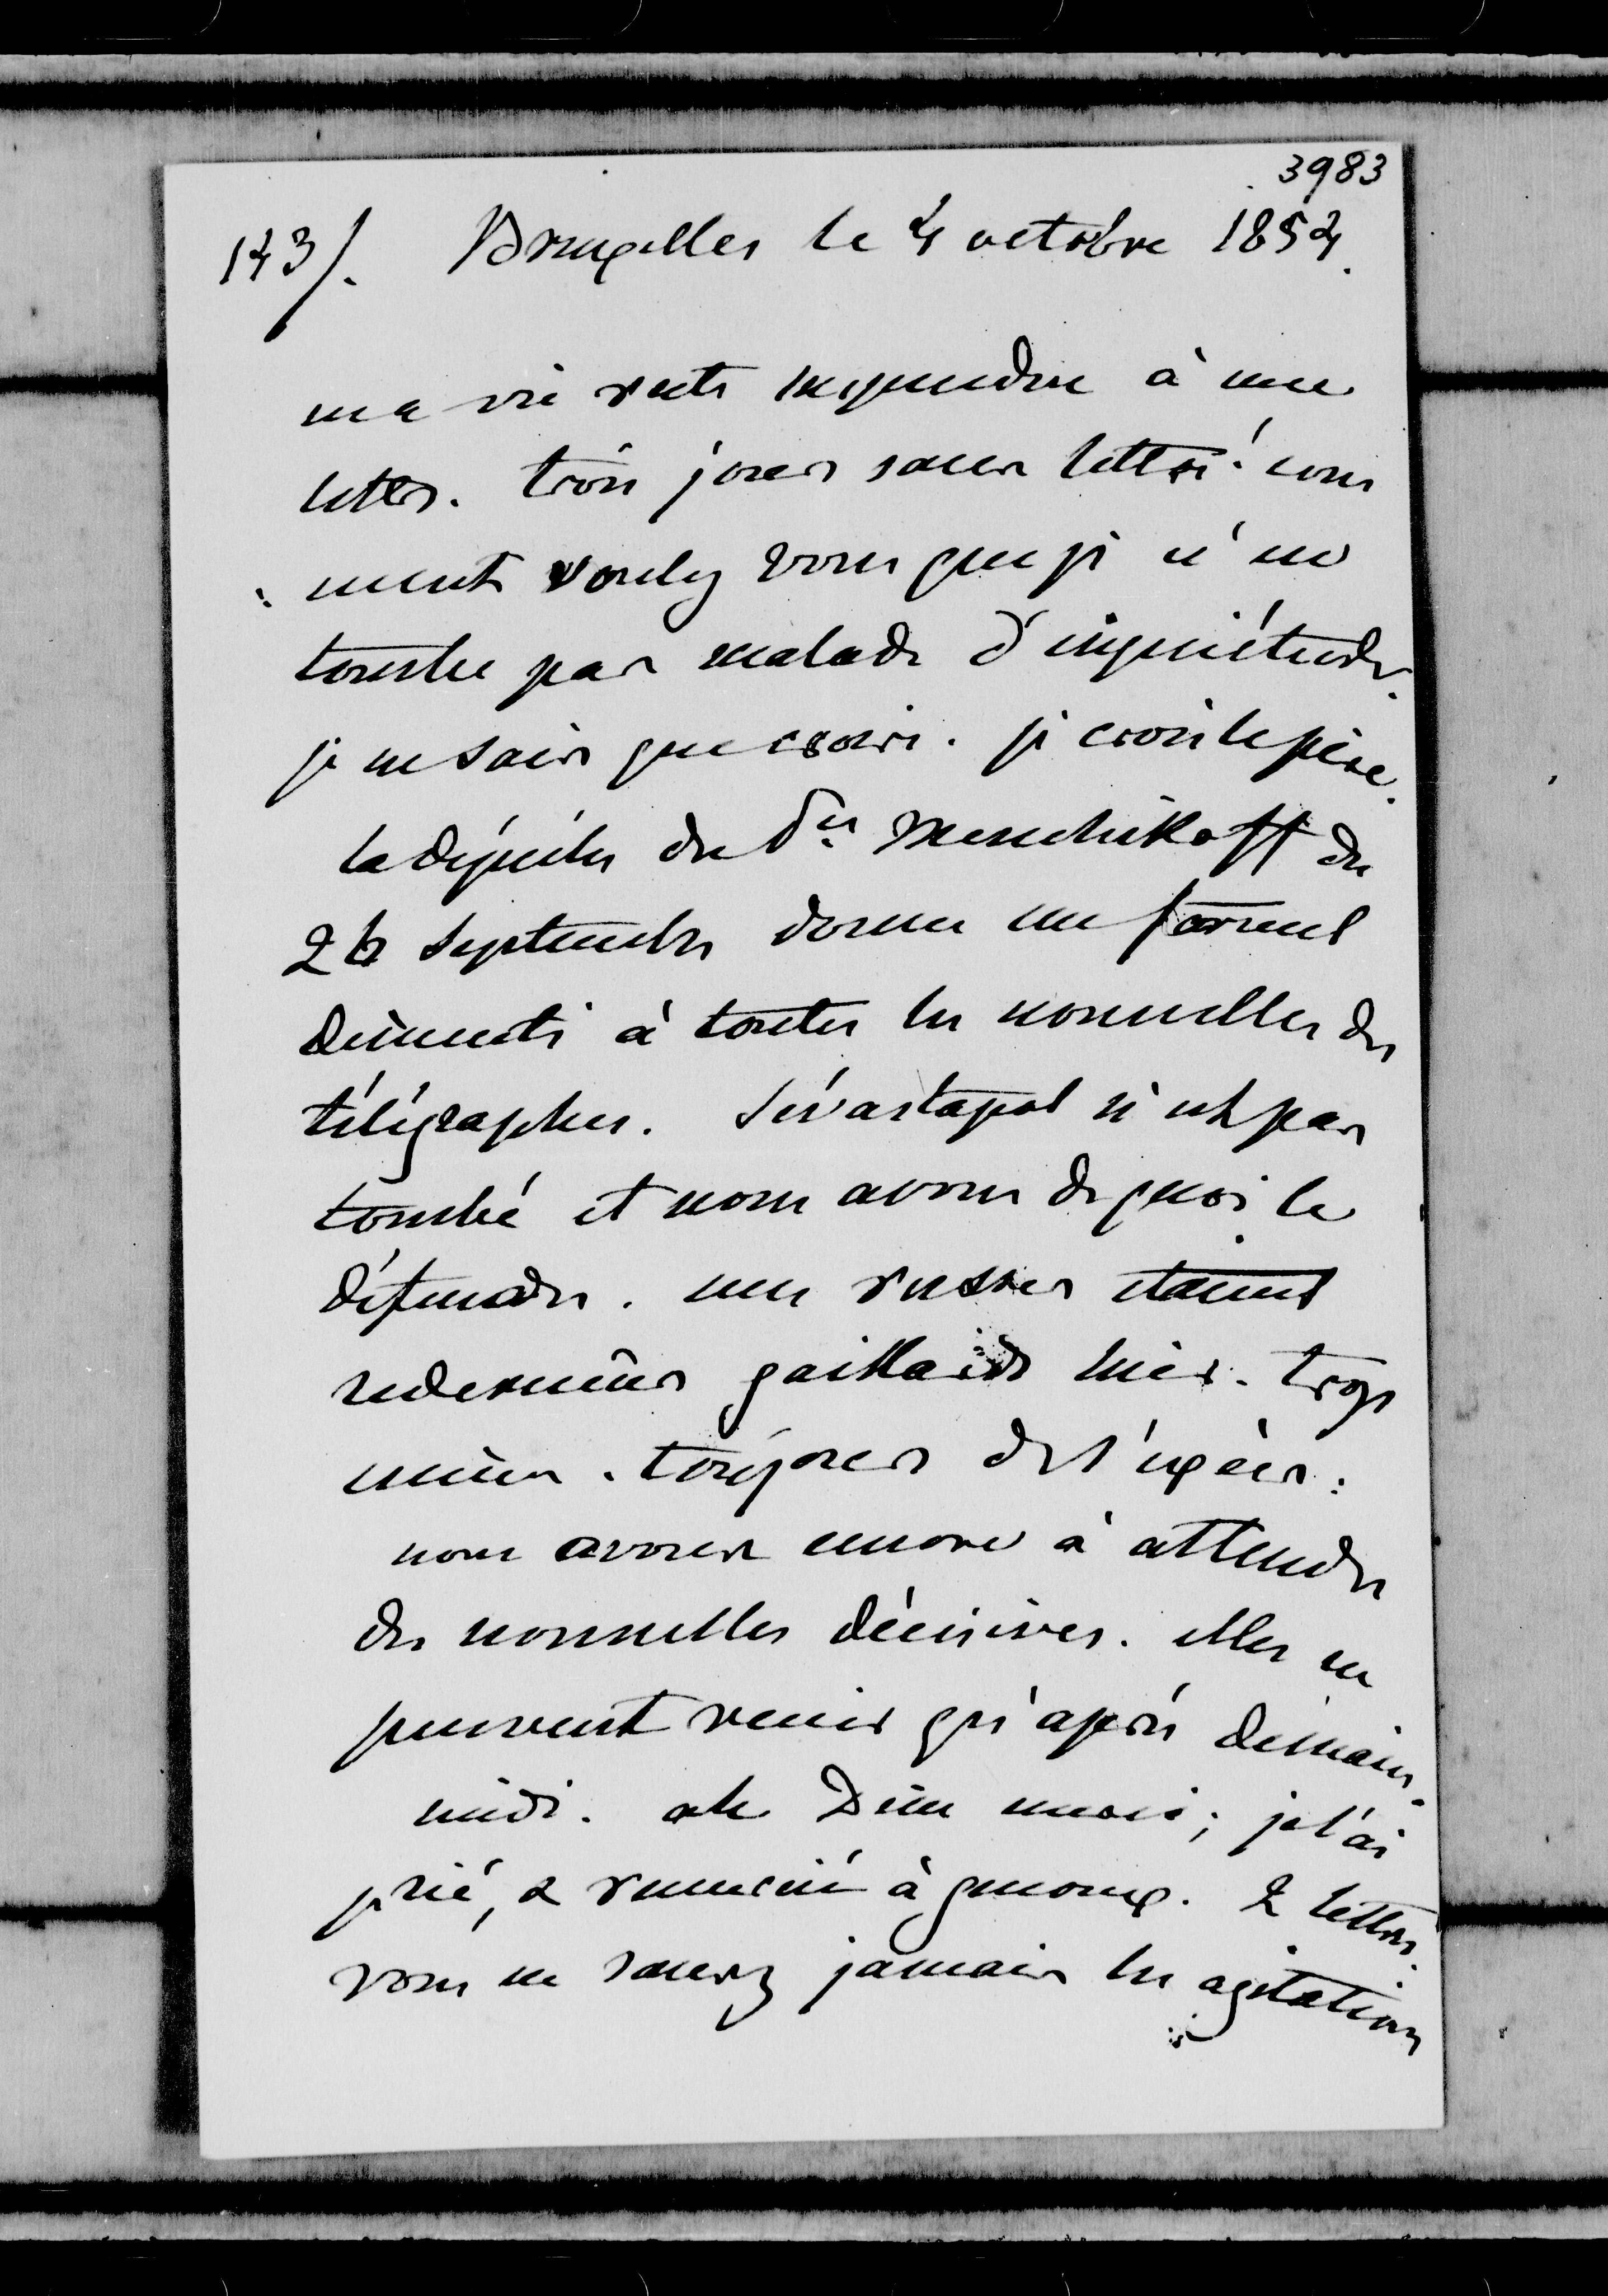 3983
143/. Bruxelles le 4 octobre 1854.
ma vie reste suspendue à une
lettre. trois jours sans lettre! com
: ment voulez vous que je n'en
tombe pas malade d'inquiétude.
je ne sais que croire. je crois le pire.
la dépêche du Pce Menchikoff du
26 septembre donne un formel
démenti à toutes les nouvelles des
télégraphes. Sévastopol n'est pas
tombé et nous avons de quoi le
défendre. mes russes étaient
redevenus gaillards hier. trop
même. toujours de l'excès.
nous avons encore à attendre
des nouvelles décisives. elles ne
peuvent venir qu'après demain.
midi. ah Dieu merci; je l'ai
prié, & remercié à genoux. 2 lettres.
vous ne saurez jamais les agitations